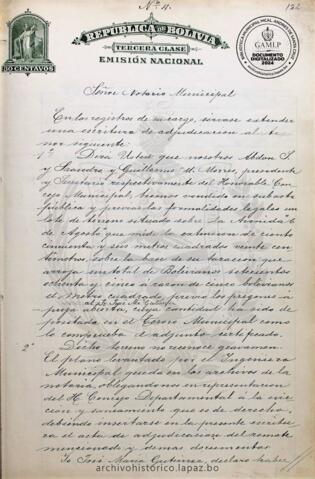 Nº 4.
122
REPUBLICA DE BOLIVIA
TERCERA CLASE
EMISIÓN NACIONAL
50 CENTAVOS
GAMLP
DOCUMENTO
DIGITALIZADO
2024
Señor Notario Municipal
En los registros de su cargo, sírvase extender
una escritura de adjudicación al te
nor siguiente:
1º Dirá Usted que nosotros Abdon S.
y Saavedra y Guillermo U. Morris, presidente
y Secretario respectivamente del Honorable Con
cejo Municipal, hemos vendido en subasta
pública y previas las formalidades legales un
lote de terreno situado sobre la Avenida "6
de Agosto" que mide la extension de ciento
cincuenta y seis metros cuadrados veinte cen
tímetros, sobre la base de su tasacion que
arroja un total de Bolivianos setecientos
ochenta y cinco á razon de cinco bolivianos
el metro cuadrado, previo los pregones á
puja abierta, cuya cantidad ha sido de
positada en el Tesoro Municipal como
lo comprueba el adjunto certificado.
2º Dicho terreno no reconoce gravamen.
El plano levantado por el Ingeniero
Municipal queda en los archivos de la
notaría, obligandonos en representacion
del H. Concejo Departamental á la evic
cion y saneamiento que es de derecho,
debiendo insertarse en la presente escritu
ra el acta de adjudicacion del remate
mencionado y demas documentos.
Yo José María Gutierrez, declaro haber
archivohistórico.lapaz.bo